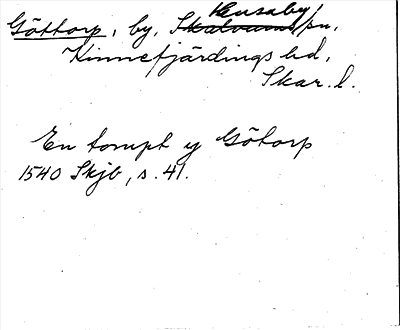 Göttorp, by, Husaby sn,
Kinnefjärdings hd,
Skar. l.
En tompt y Götorp
1540 Skjb, s. 41.